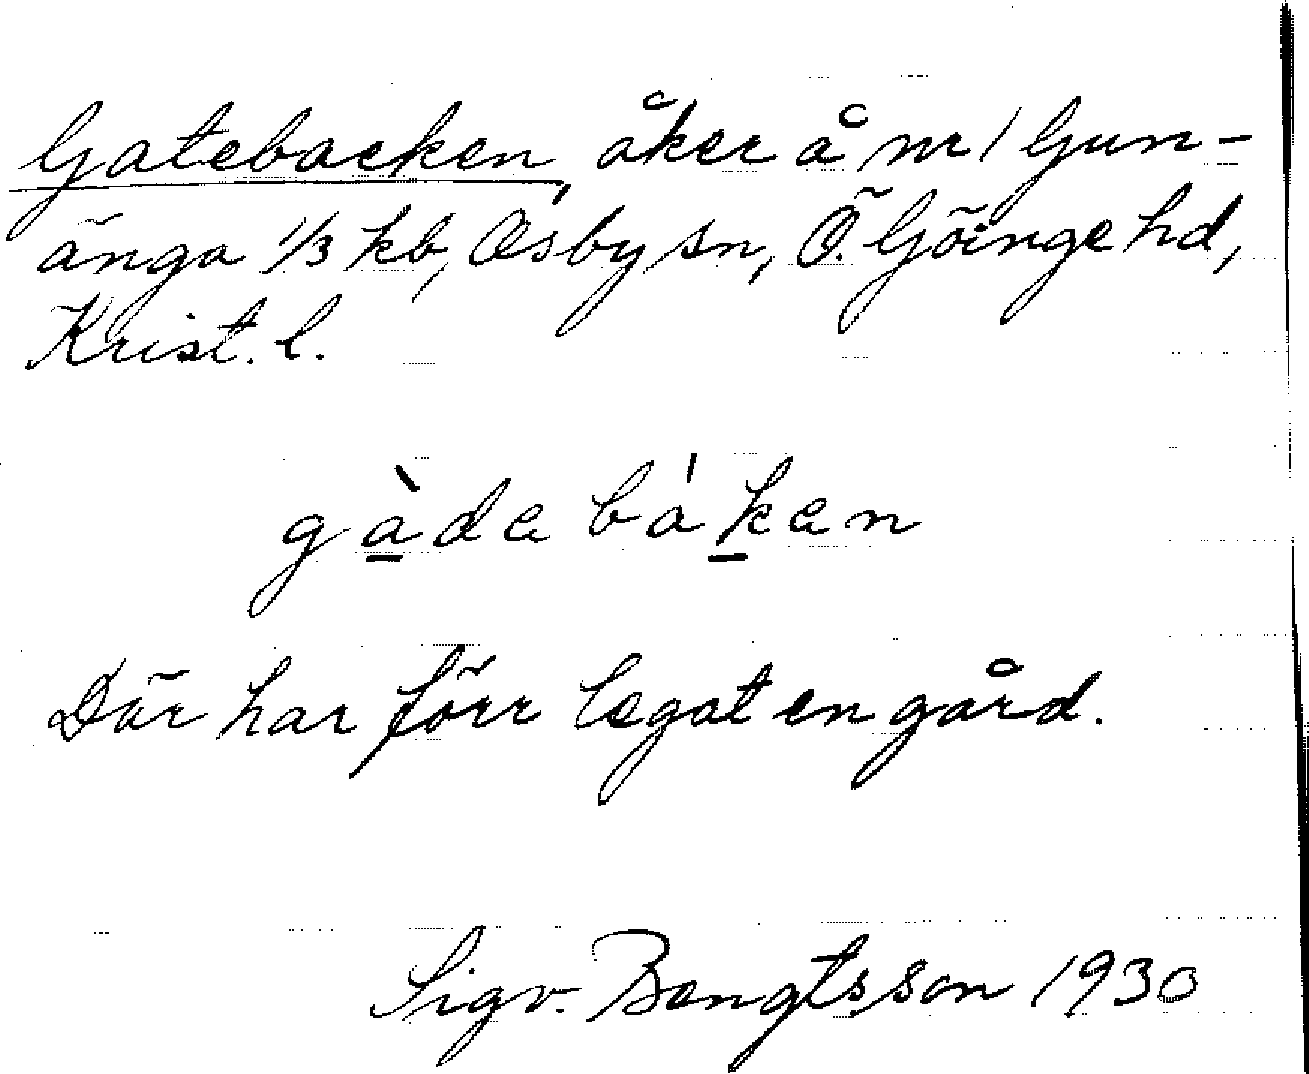 Gatebacken, åker å nr 1 Gun-
änga 1/3 kb, Osby sn, Ö. Göinge hd,
Krist. l.
gàdebákan
Där har förr legat en gård.
Sigv. Bengtsson 1930